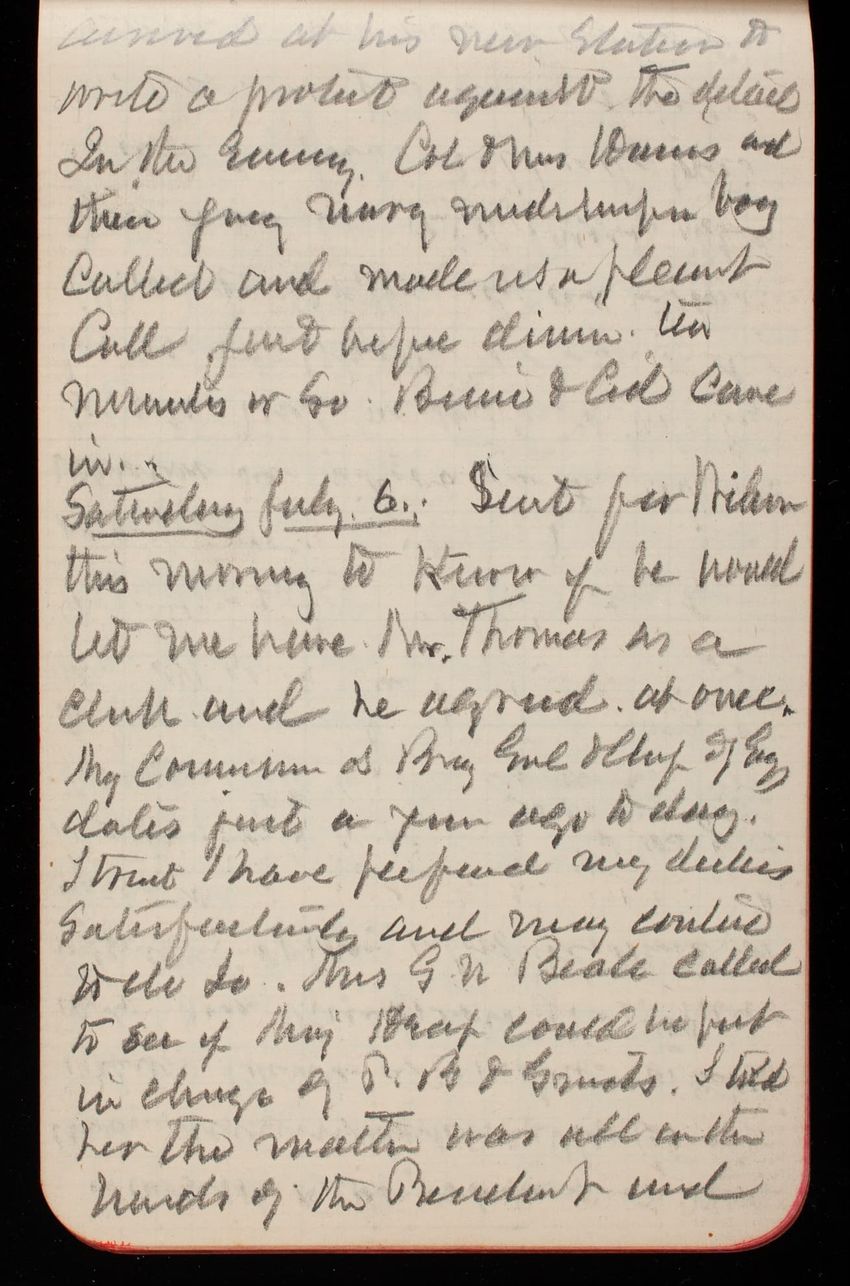 arrived at his new Station to
write a protest against the detail
In the Evening. Col & Mrs and
their young Navy midshipman boy
Called and made us a pleasant
Call just before dinner. ten
minutes or so. Bessie & Col Came
in.
Saturday July. 6. Sent for Wilson
this morning to Know if he would
let me have Mr. Thomas as a
clerk and he agreed. at once.
My Commission as Brig Genl & Chf of Eng
dates just a year ago to day.
I trust I have performed my duties
Satisfactorily and may continue
to do so. Mrs G N Beale called
to see if Maj Heap could be put
in charge of P. B & Grounds. I told
her the matter was all in the
hands of the President and